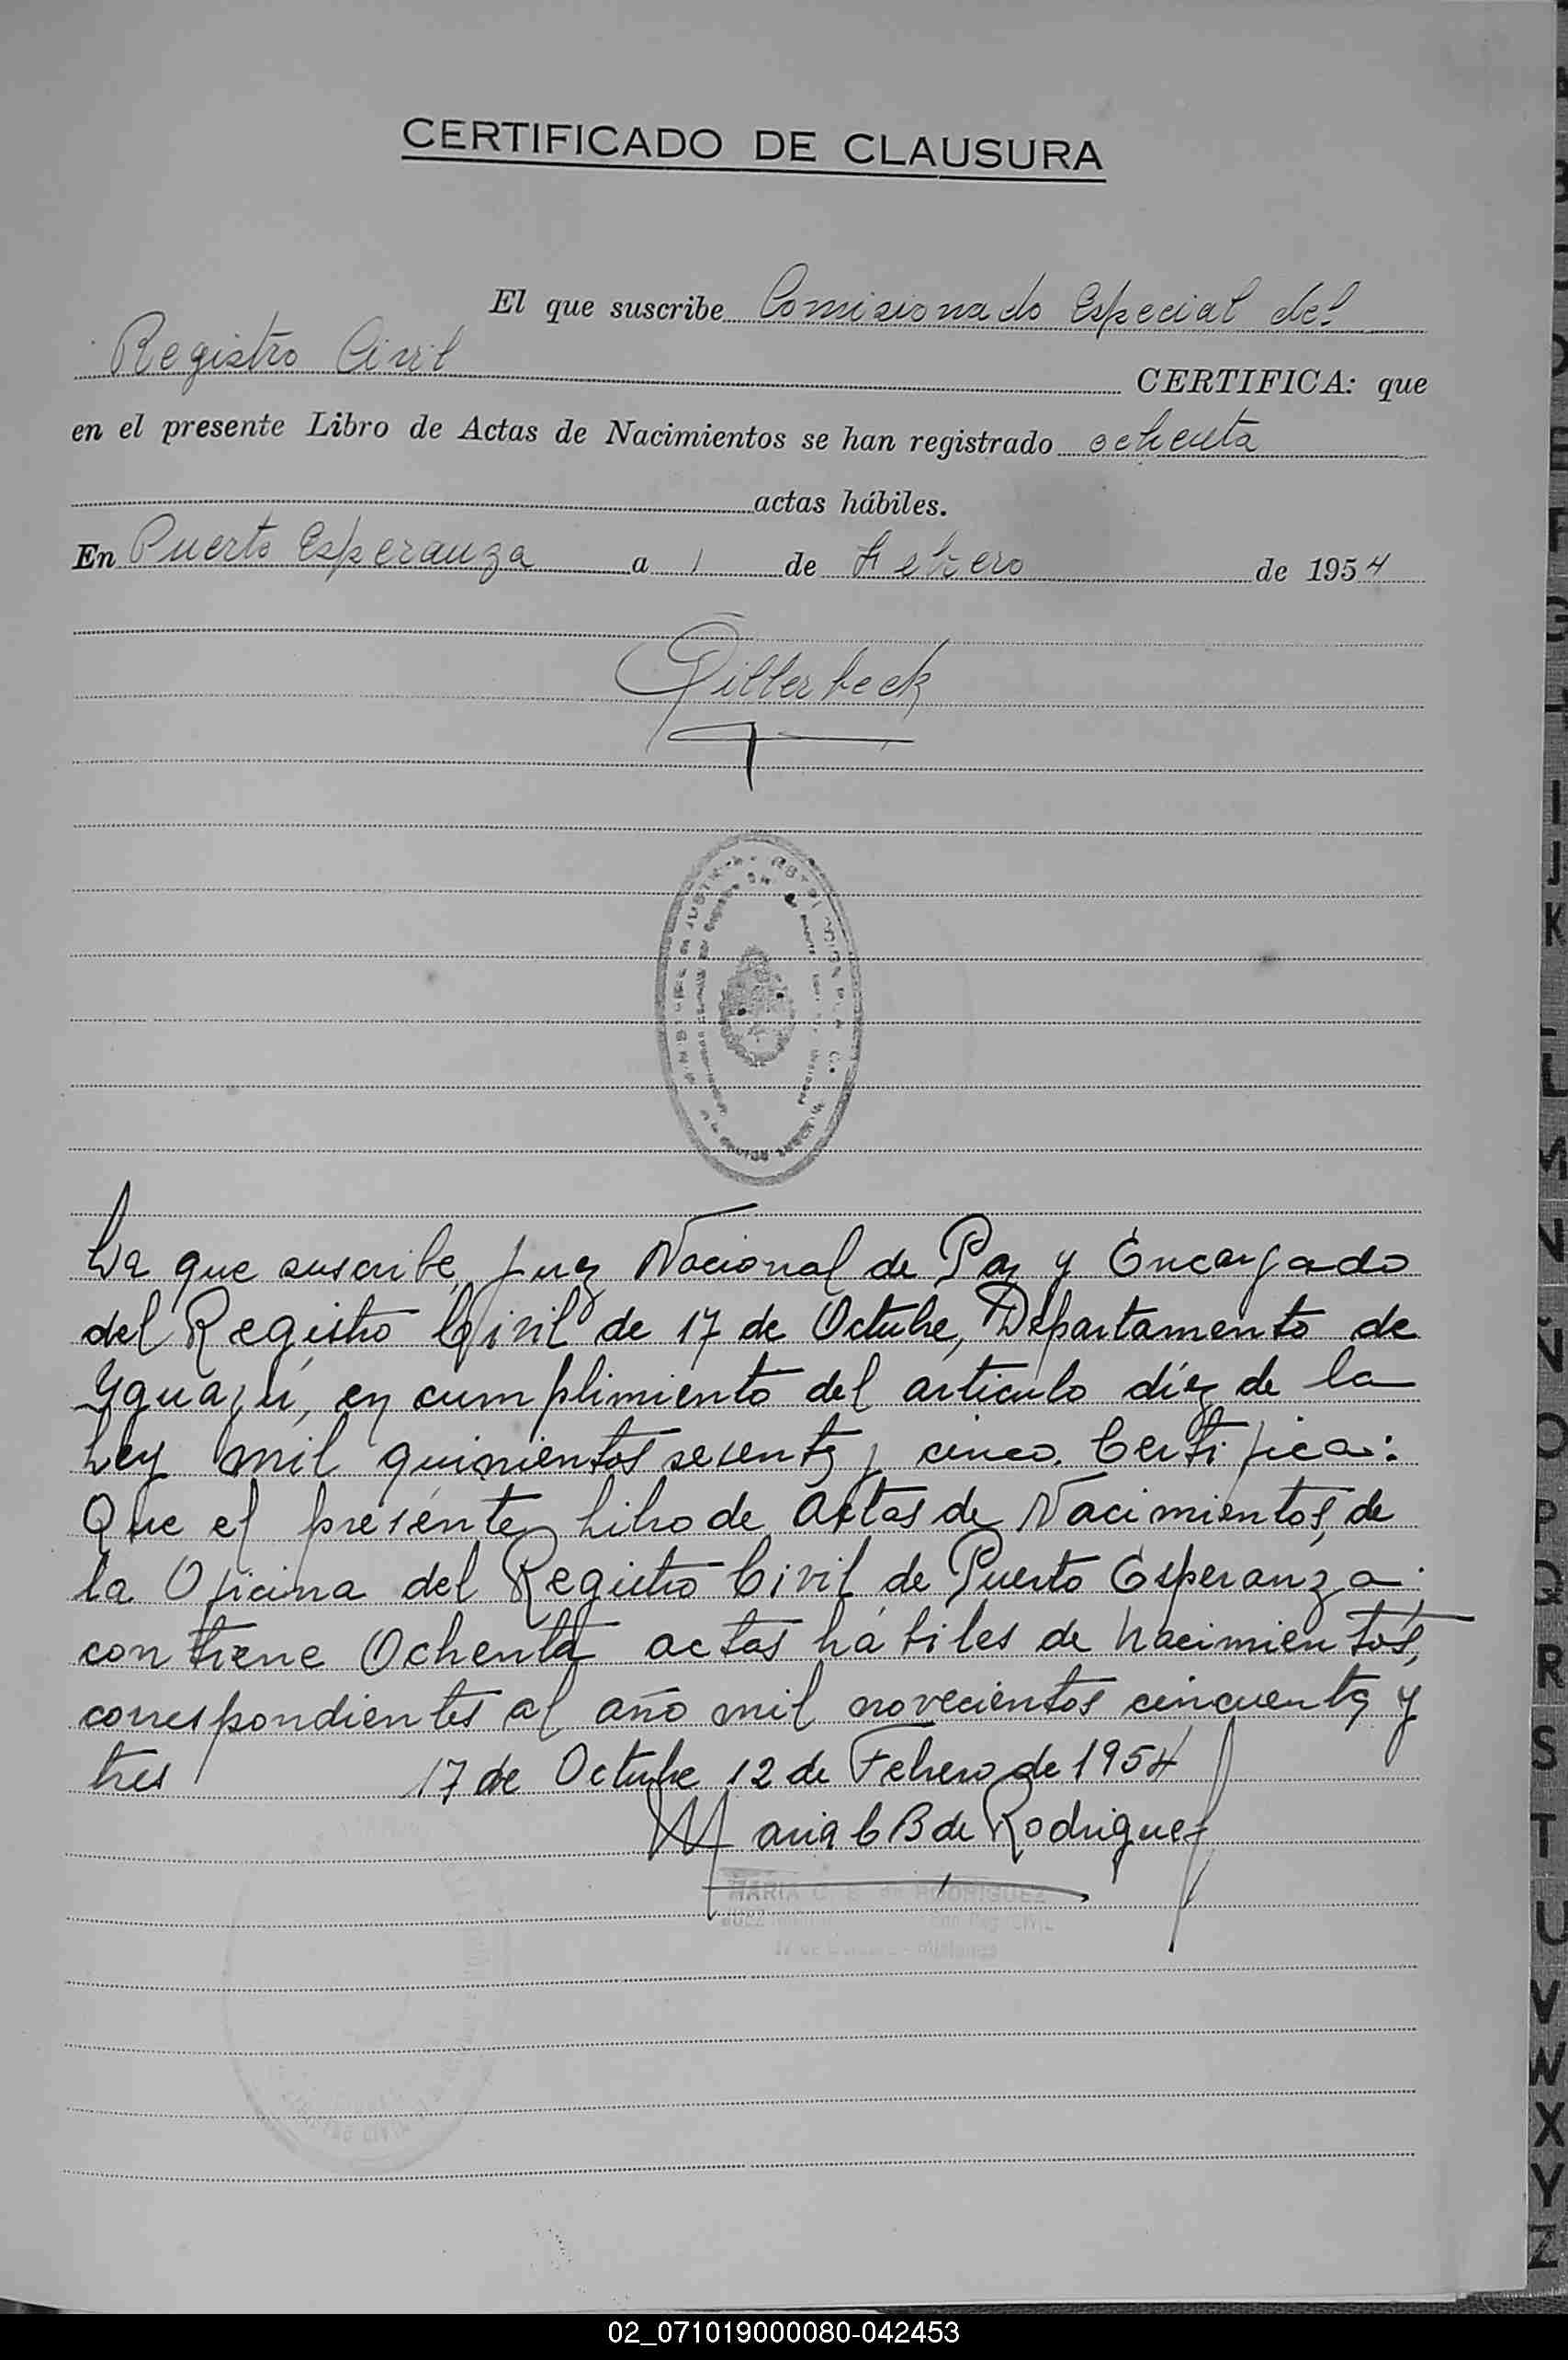 CERTIFICADO DE CLAUSURA
El que suscribe Comisionado Especial del
Registro Civil CERTIFICA: que
en el presente Libro de Actas de Nacimientos se han registrado ochenta
actas hábiles.
En Puerto Esperanza a 1 de Febrero de 1954
La que suscribe, Juez Nacional de Paz y Encargado
del Registro Civil de 17 de Octubre, Departamento de
Yguazú, en cumplimiento del articulo díez de la
Ley mil quinientos sesenta y cinco. Certifica:
Que el presente Libro de Actas de Nacimientos, de
la Oficina del Registro Civil de Puerto Esperanza
contiene Ochenta actas hábiles de nacimientos,
correspondientes al año mil novecientos cincuenta y
tres 17 de Octubre 12 de Febrero de 1954
Maria C B de Rodriguez
MARIA C. B. de RODRIGUEZ
JUEZ Reg. CIVIL
17 de Octubre - Misiones
A
B
C
D
E
F
G
H
I
J
K
L
M
N
Ñ
O
P
Q
R
S
T
U
V
W
X
Y
Z
02_071019000080-042453